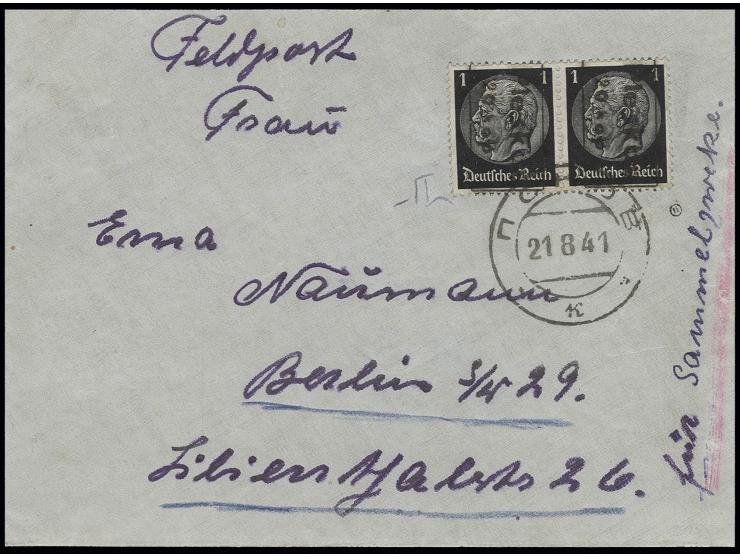 Feldpost
Frau
Erna
Naumann
Berlin S/W 29.
Lilienthalstr 26.
für Sammelzweke.
1 1
Deutsches Reich
1 1
Deutsches Reich
21 8 41
к
II